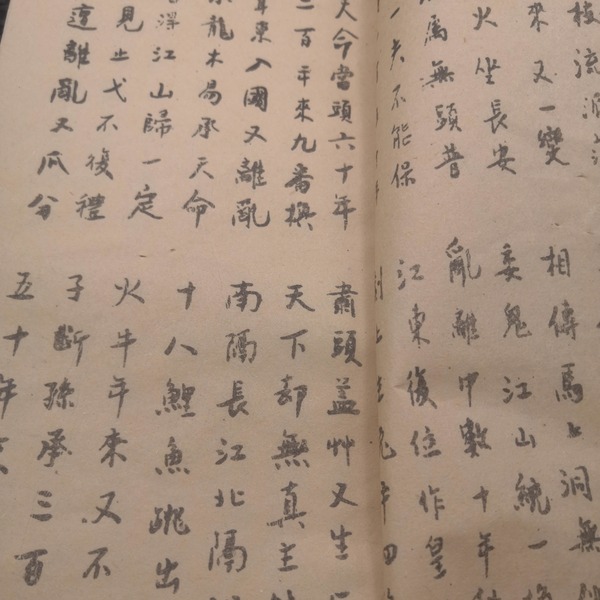 枝流
來又一變
火坐長安
馬無頭普
一夫不能保
相傳馬上洞無
委鬼江山統一
亂離甲數十年
江東復位作皇
天今當頭六十年
二百年來九番換
年東入國又離亂
龍木易承天命
澤江山歸一定
見止戈不復禮
遭離亂又瓜分
肅頭蓋艸又生
天下却無真主
南隔長江北隔
十八鯉魚跳出
火牛年來又不
子斷孫承三百
五十年